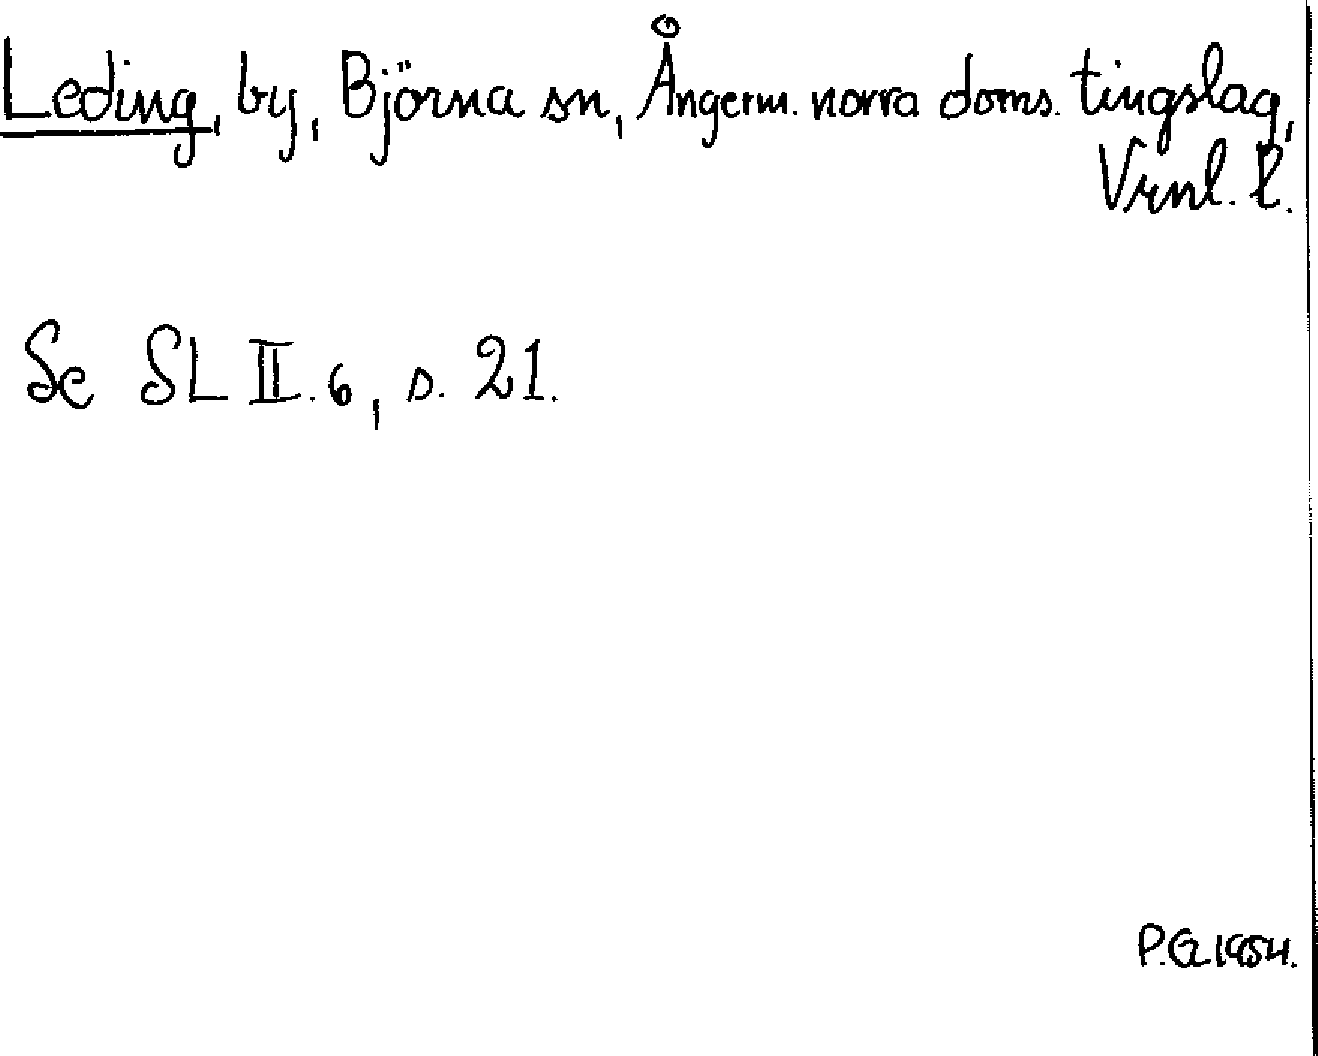 Leding, by, Björna sn, Ångerm. norra doms. tingslag,
Vrnl. l.
Se SL II.6, s. 21.
P.G. 1954.